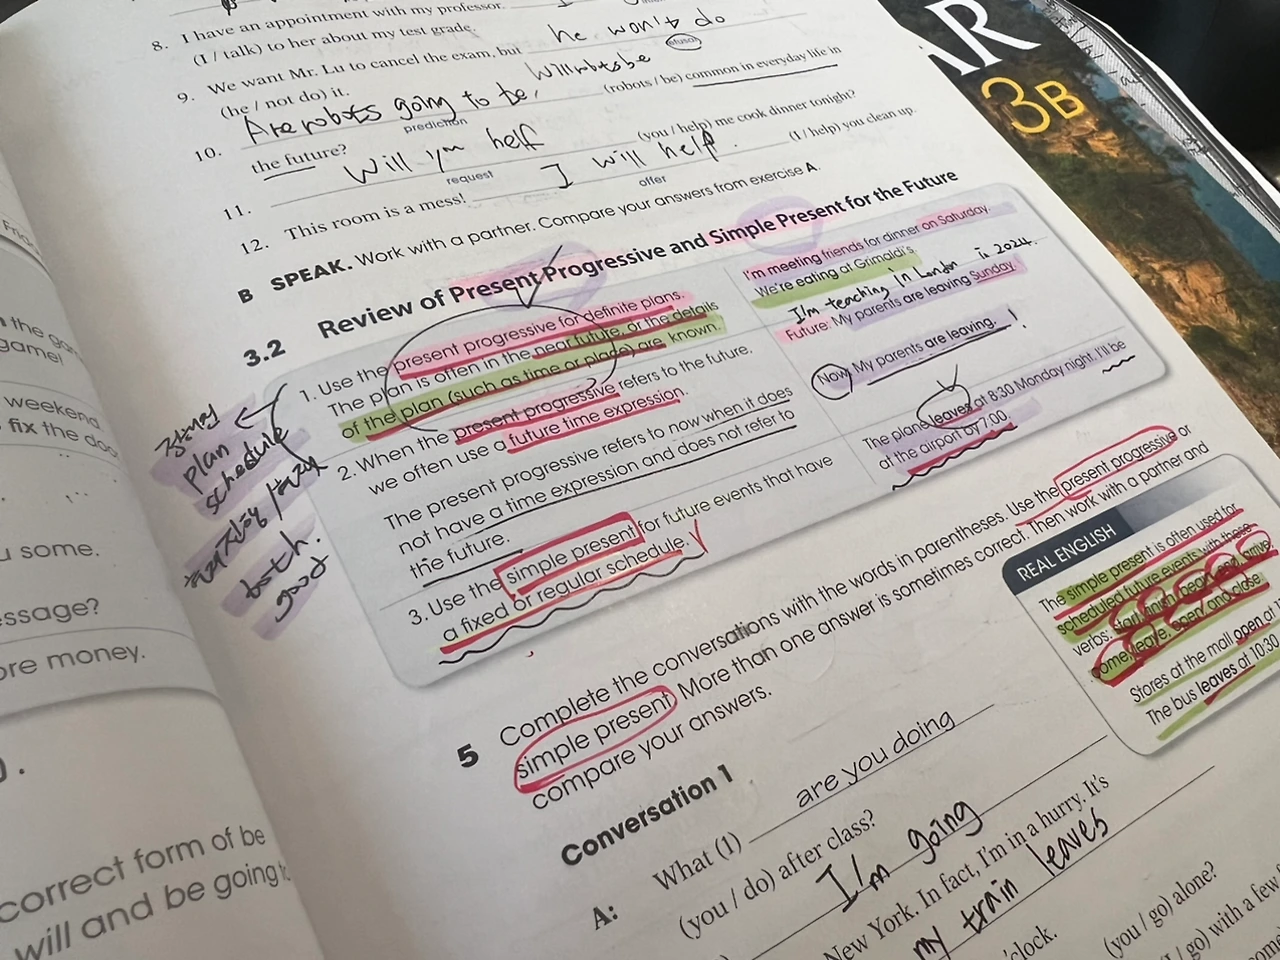 8. I have an appointment with my professor.
(I / talk) to her about my test grade.
9. We want Mr. Lu to cancel the exam, but he won't do
refusal
(he / not do) it.
10. Are robots going to be, Will robots be (robots / be) common in everyday life in
prediction
the future?
11. Will you help (you / help) me cook dinner tonight?
request
12. This room is a mess! I will help. (I / help) you clean up.
offer
B SPEAK. Work with a partner. Compare your answers from exercise A.
3.2 Review of Present Progressive and Simple Present for the Future
1. Use the present progressive for definite plans.
The plan is often in the near future, or the details
of the plan (such as time or place) are known.
I'm meeting friends for dinner on Saturday.
We're eating at Grimaldi's.
I'm teaching in London in 2024.
2. When the present progressive refers to the future,
we often use a future time expression.
Future: My parents are leaving Sunday.
The present progressive refers to now when it does
not have a time expression and does not refer to
the future.
Now: My parents are leaving. !
3. Use the simple present for future events that have
a fixed or regular schedule.
The plane leaves at 8:30 Monday night. I'll be
at the airport by 7:00.
plan
schedule
both.
good
5 Complete the conversations with the words in parentheses. Use the present progressive or
simple present. More than one answer is sometimes correct. Then work with a partner and
compare your answers.
REAL ENGLISH
The simple present is often used for
scheduled future events with these
verbs: start, finish, begin, end, arrive,
come, leave, open, and close.
Stores at the mall open at
The bus leaves at 10:30
Conversation 1
A: What (1) are you doing
(you / do) after class?
I'm going
New York. In fact, I'm in a hurry. It's
my train leaves
'clock.
(you / go) alone?
/ go) with a few
AR
3B
the
game!
weekend
fix the
some.
essage?
ore money.
correct form of be
will and be going